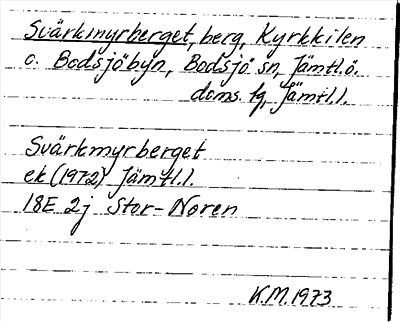 Svärkmyrberget, berg, Kyrkkilen
o. Bodsjöbyn, Bodsjö sn, Jämtl.ö.
doms. tg, Jämtl.l.
Svärkmyrberget
ek (1972) Jämtl.l.
18E 2j Stor-Noren
K.M. 1973